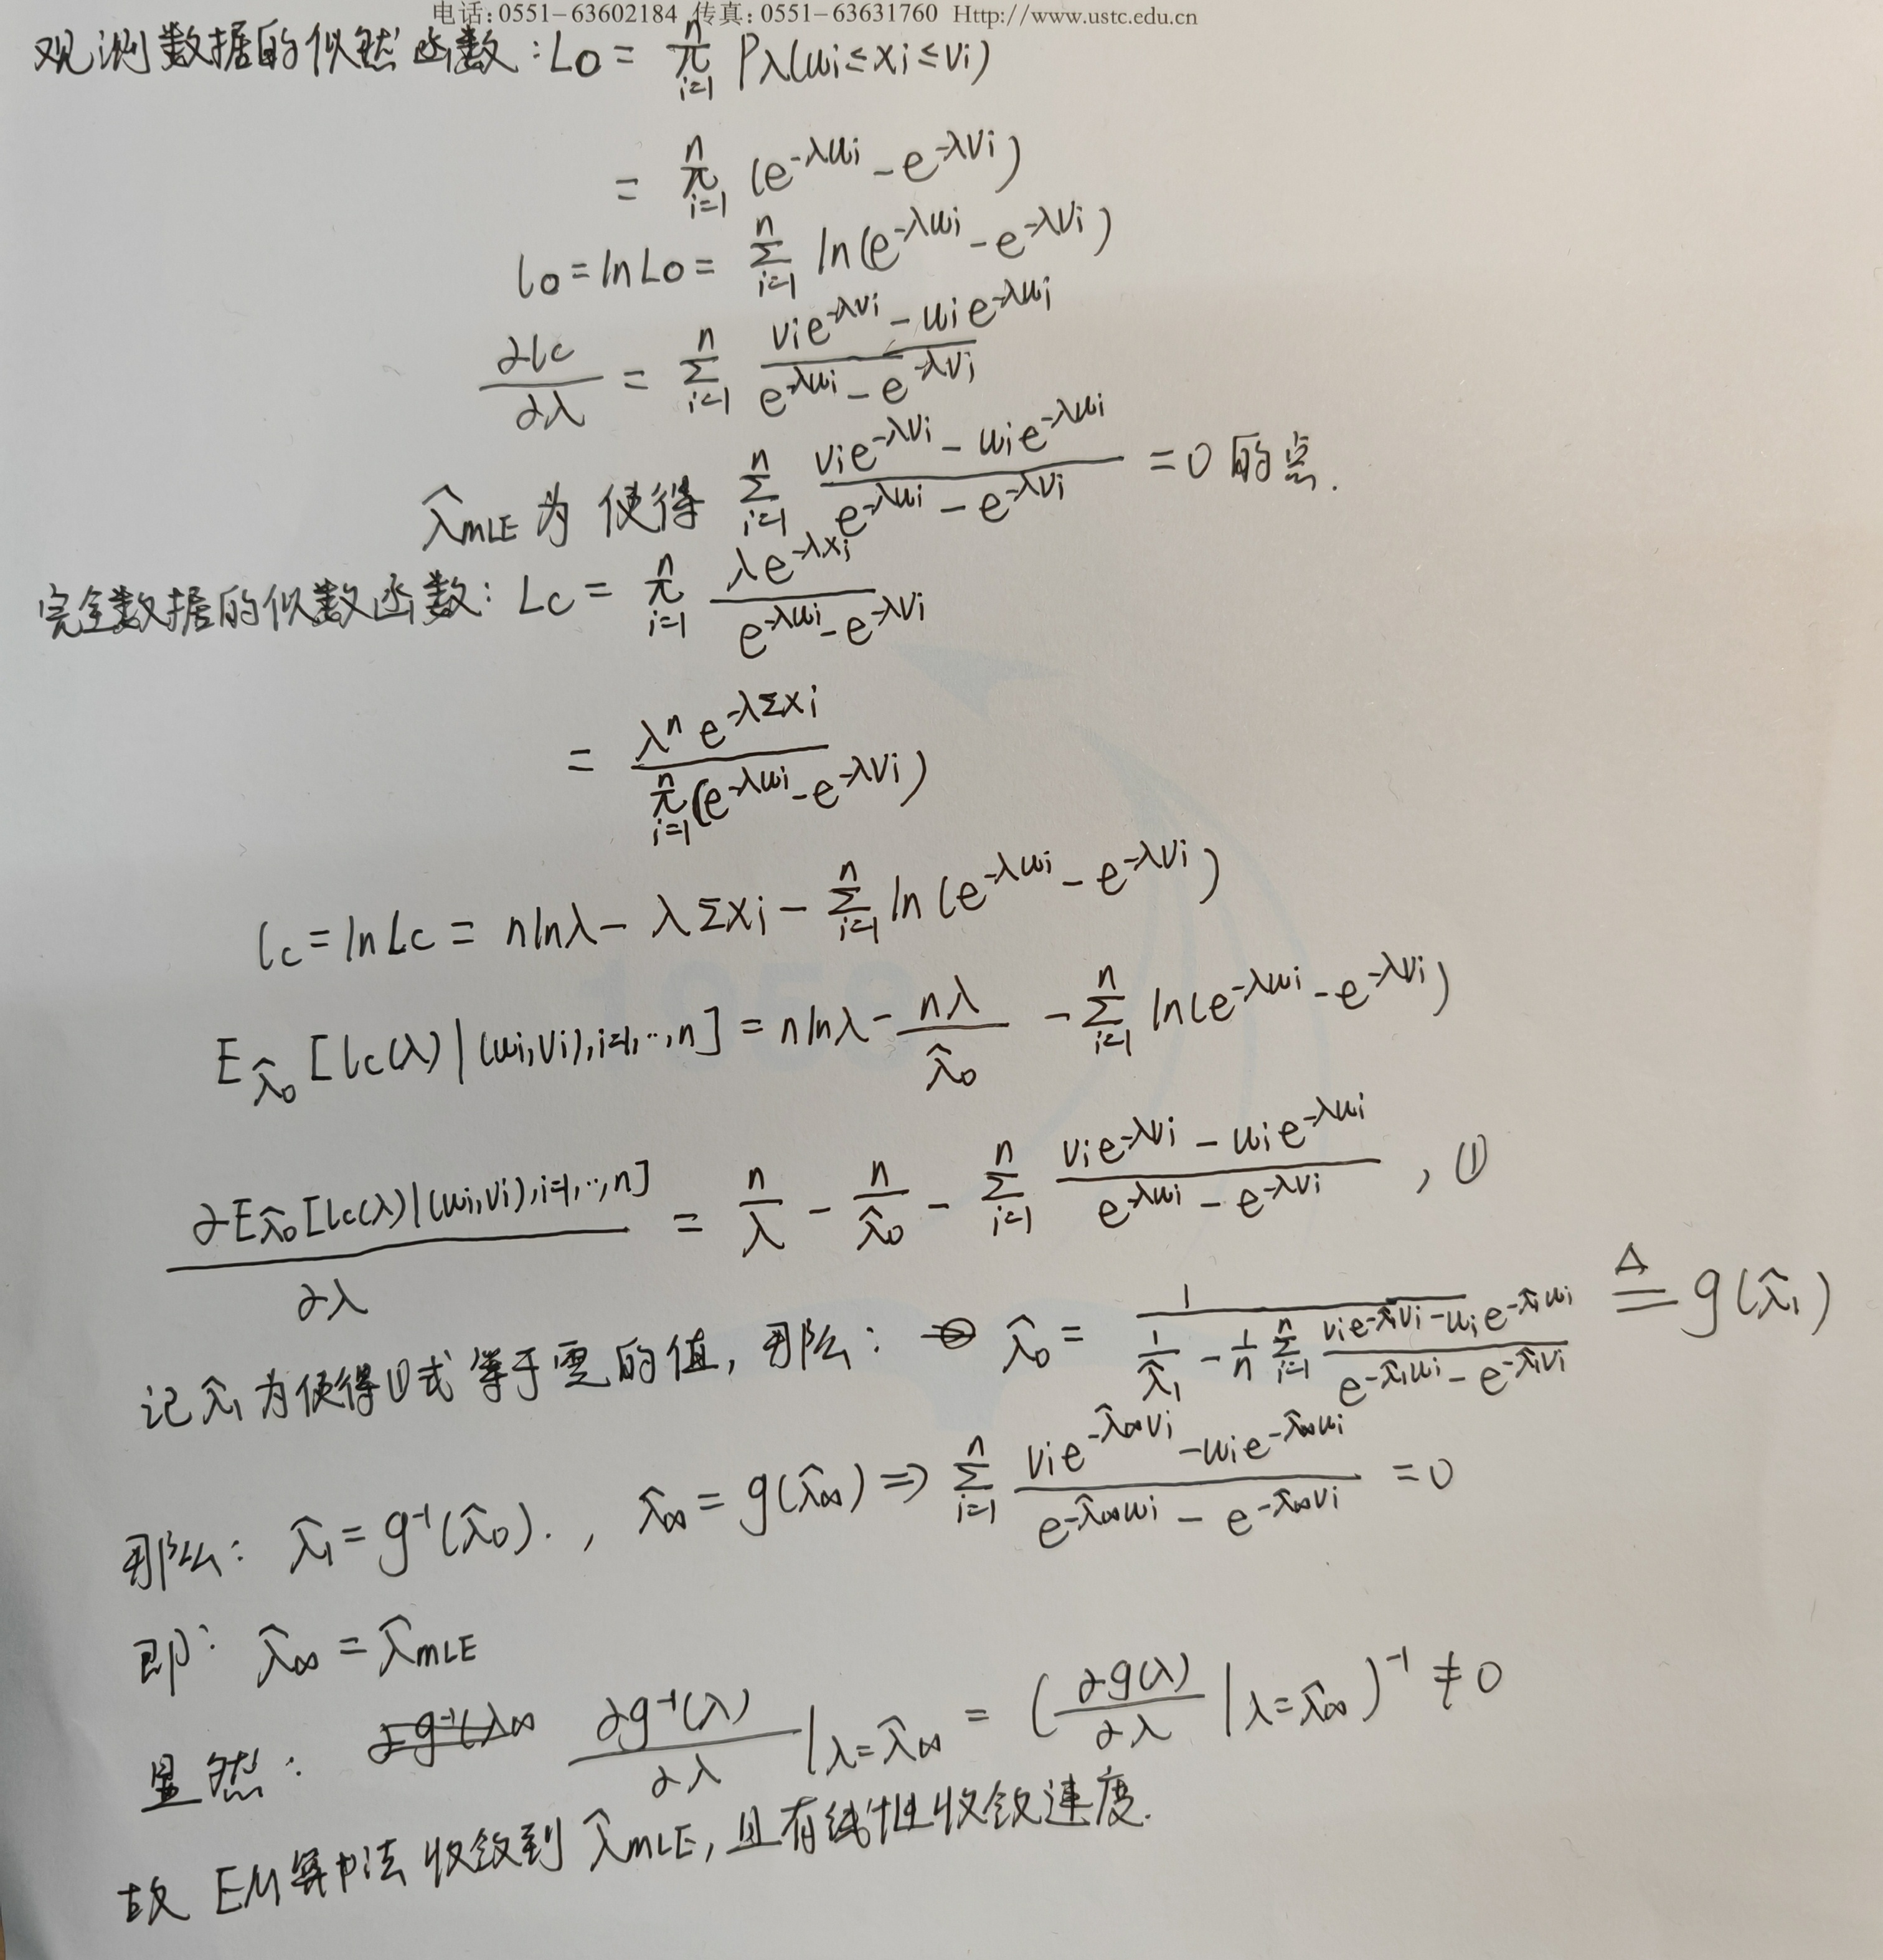 电话:0551-63602184 传真:0551-63631760 Http://www.ustc.edu.cn
观测数据的似然函数:LO = ∏_{i=1}^{n} Pλ(ui≤xi≤vi)
= ∏_{i=1}^{n} (e^{-λui} - e^{-λvi})
lo = lnLo = Σ_{i=1}^{n} ln(e^{-λui} - e^{-λvi})
∂lc/∂λ = Σ_{i=1}^{n} (vie^{-λvi} - uie^{-λui})/(e^{-λui} - e^{-λvi})
λ̂MLE 为 使得 Σ_{i=1}^{n} (vie^{-λvi} - uie^{-λui})/(e^{-λui} - e^{-λvi}) = 0 的点.
完全数据的似数函数: Lc = ∏_{i=1}^{n} λe^{-λxi}/(e^{-λui} - e^{-λvi})
= λ^n e^{-λΣxi}/∏_{i=1}^{n}(e^{-λui} - e^{-λvi})
lc = lnLc = nlnλ - λΣxi - Σ_{i=1}^{n} ln(e^{-λui} - e^{-λvi})
E_{λ̂0}[lc(λ)|(ui,vi),i=1,···,n] = nlnλ - nλ/λ̂0 - Σ_{i=1}^{n} ln(e^{-λui} - e^{-λvi})
∂E_{λ̂0}[lc(λ)|(ui,vi),i=1,··,n]/∂λ = n/λ - n/λ̂0 - Σ_{i=1}^{n} (vie^{-λvi} - uie^{-λui})/(e^{-λui} - e^{-λvi}) , ①
记λ̂1为使得①式等于零的值, 那么: λ̂0 = 1/(1/λ̂1 - 1/n Σ_{i=1}^{n} (vie^{-λ̂1vi} - uie^{-λ̂1ui})/(e^{-λ̂1ui} - e^{-λ̂1vi})) ≜ g(λ̂1)
那么: λ̂1 = g^{-1}(λ̂0)., λ̂∞ = g(λ̂∞) ⇒ Σ_{i=1}^{n} (vie^{-λ̂∞vi} - uie^{-λ̂∞ui})/(e^{-λ̂∞ui} - e^{-λ̂∞vi}) = 0
即: λ̂∞ = λ̂MLE
显然: ∂g^{-1}(λ)/∂λ |λ=λ̂∞ = (∂g(λ)/∂λ |λ=λ̂∞)^{-1} ≠ 0
故 EM算法收敛到 λ̂MLE, 且有线性收敛速度.